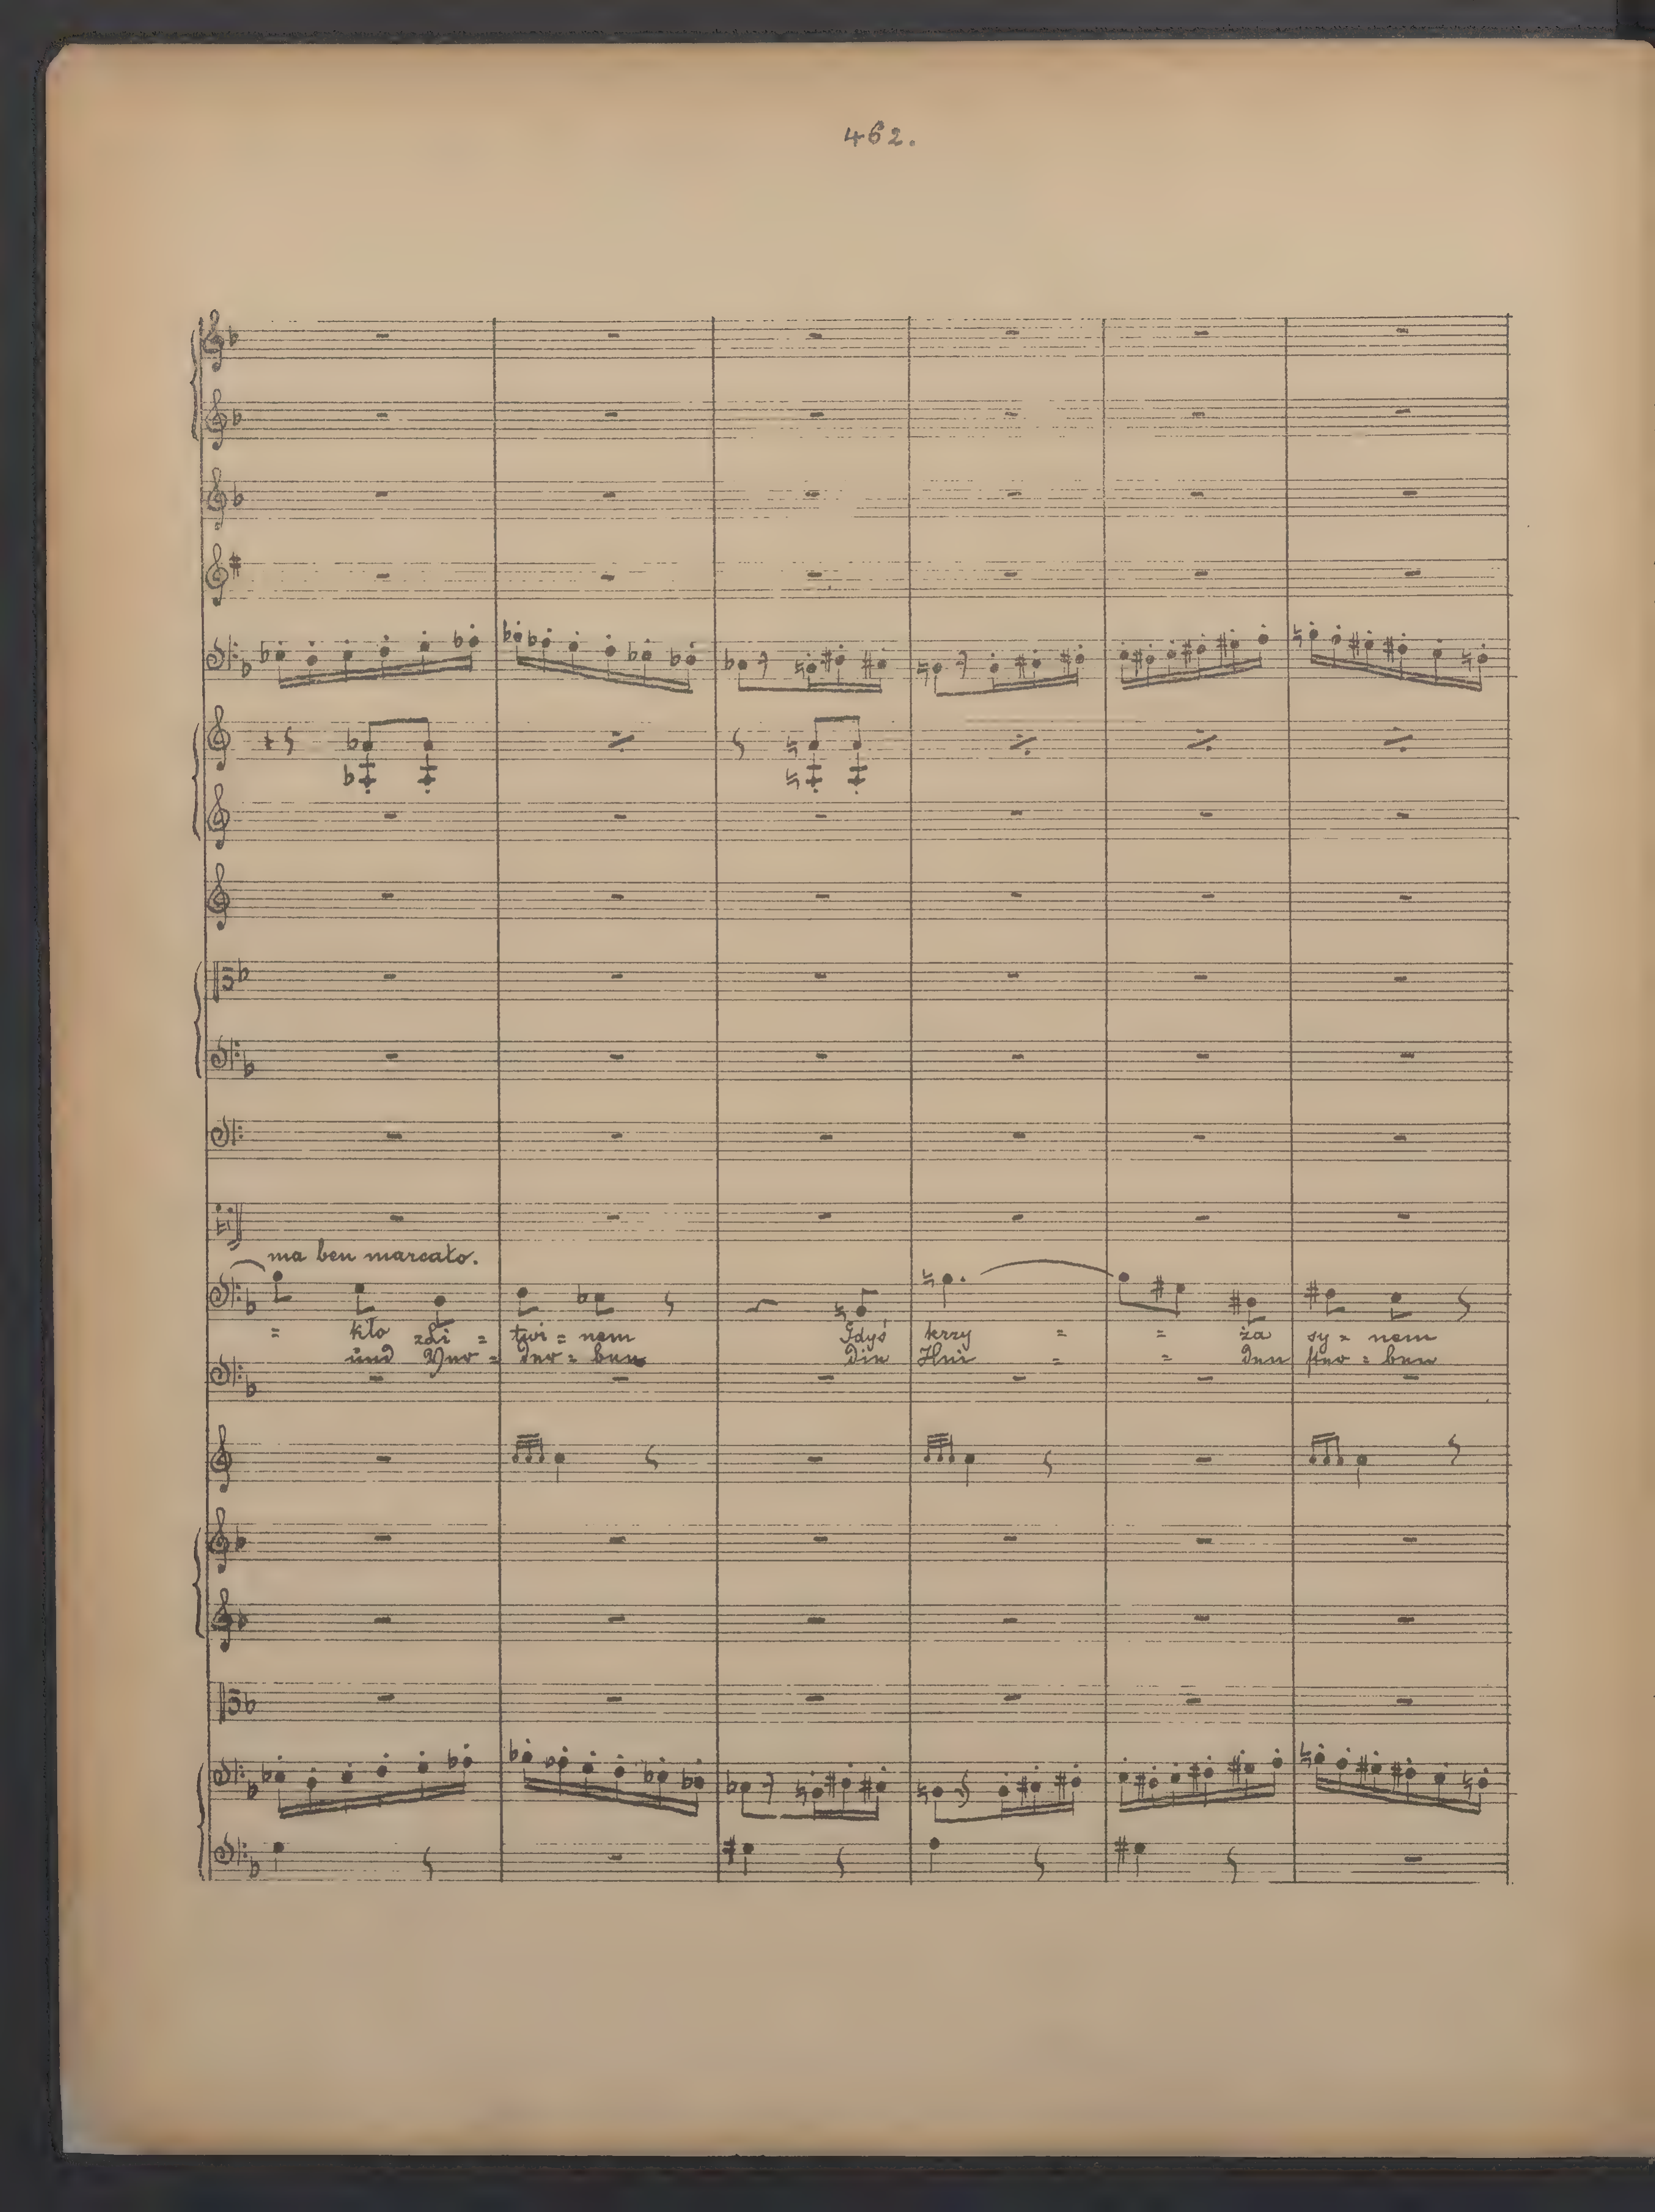 462.
ma ben marcato.
= kło zdi = twi = nem Gdyś krzy = = ża sy = nem
und Ver = der = ben die Hei = = den ster = ben